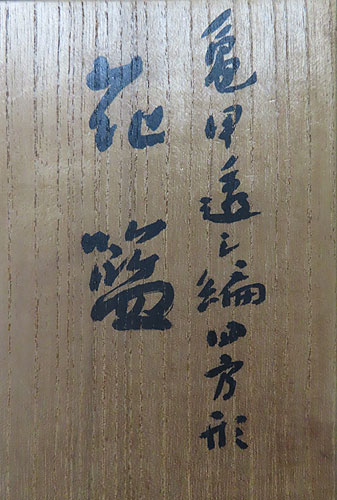 亀甲透し編四方形
花籃